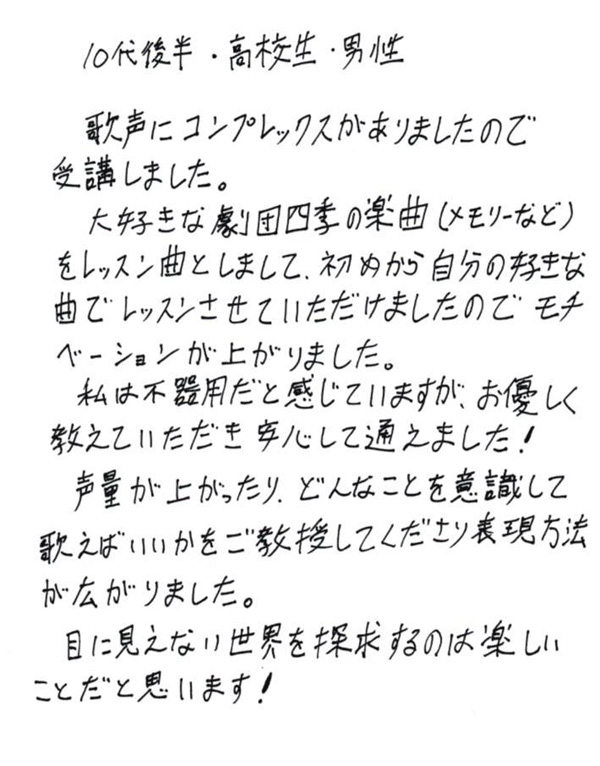 10代後半・高校生・男性
歌声にコンプレックスがありましたので
受講しました。
大好きな劇団四季の楽曲(メモリーなど)
をレッスン曲としまして、初めから自分の好きな
曲でレッスンさせていただけましたのでモチ
ベーションが上がりました。
私は不器用だと感じていますが、お優しく
教えていただき安心して通えました!
声量が上がったり、どんなことを意識して
歌えばいいかをご教授してくださり表現方法
が広がりました。
目に見えない世界を探求するのは楽しい
ことだと思います!